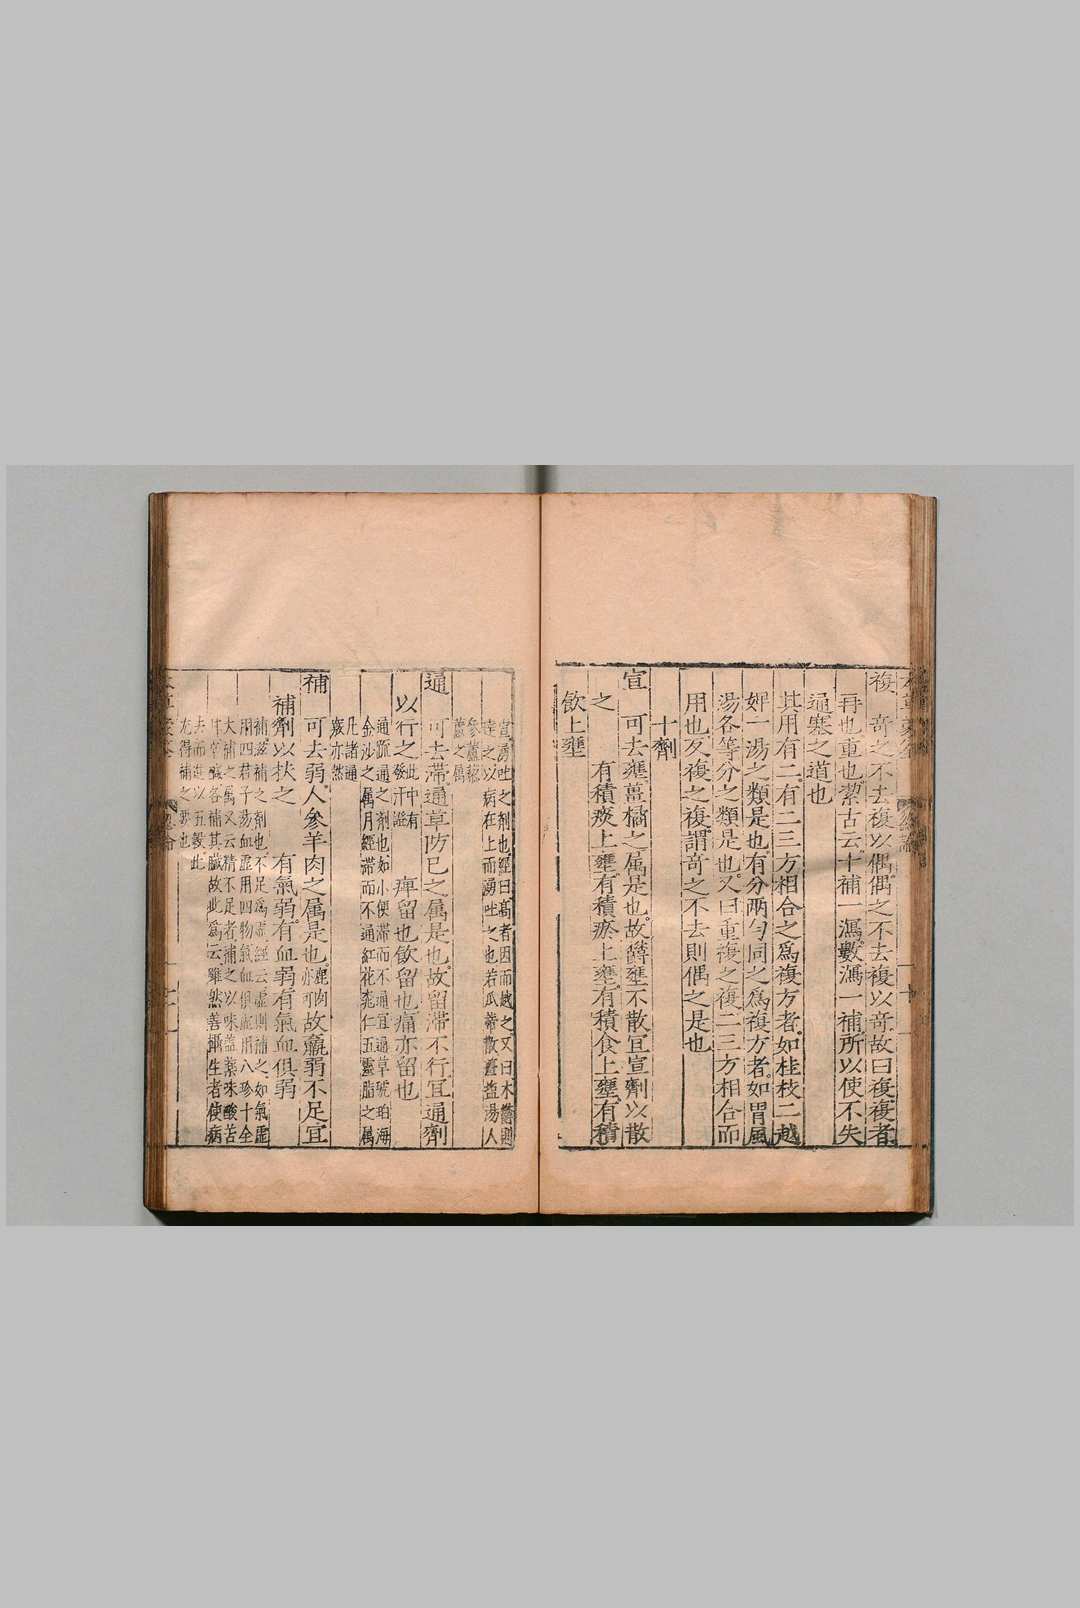 複　奇之不去複以偶偶之不去複以奇故曰複複者
再也重也㓗古云十補一瀉數瀉一補所以使不失
通塞之道也
其用有二有二三方相合之爲複方者如桂枝二越
婢一湯之類是也有分兩勻同之爲複方者如胃風
湯各等分之類是也又曰重複之複二三方相合而
用也反複之複謂奇之不去則偶之是也
十劑
宣　可去壅薑橘之属是也故欝壅不散宜宣劑以散
之　有積痰上壅有積瘀上壅有積食上壅有積
飲上壅
宣湧吐之剤也經曰髙者因而越之又曰木欝則
達之以病在上而湧吐之也若瓜蒂散薑盐湯人
參蘆藜
蘆之属
通　可去滯通草防巳之属是也故留滯不行宜通劑
以行之此中有
發汗證　痺留也飲留也痛亦留也
通疏通之剤也如小便滯而不通宜通草琥珀海
金沙之属月經滯而不通紅花桃仁五靈脂之属
凡諸通
竅亦然
補　可去弱人參羊肉之属是也鹿肉
亦可故羸弱不足宜
補劑以扶之　有氣弱有血弱有氣血俱弱
補滋補之剤也不足爲虚經云虚則補之如氣虚
用四君子湯血虚用四物氣血俱虚用八珍十全
大補之属又云精不足者補之以味盖藥味酸苦
甘辛鹹各補其臓故此爲云雖然善攝生者使病
去而進以五穀此
尤得補之要也